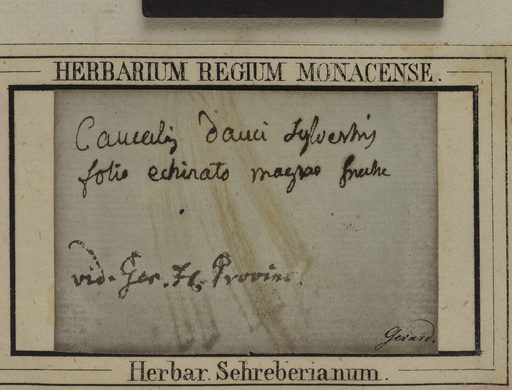 HERBARIUM REGIUM MONACENSE.
Caucalis Dauci sylvestris
folio echinato magno fructu
vid. Ger. Fl. Provinc.
Gerard.
Herbar. Schreberianum.